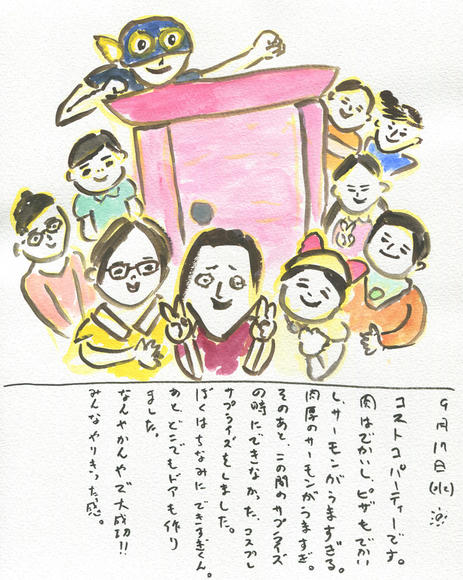 9月17日(水)
コストコパーティーです。
肉はでかいし、ピザもでかい
し、サーモンがうますぎる。
肉厚のサーモンがうますぎ。
そのあと、この間のサプライズ
の時にできなかった、コスプレ
サプライズをしました。
ぼくはちなみにできすぎくん。
あと、どこでもドアも作り
ました。
なんやかんやで大成功!!
みんなやりきった感。